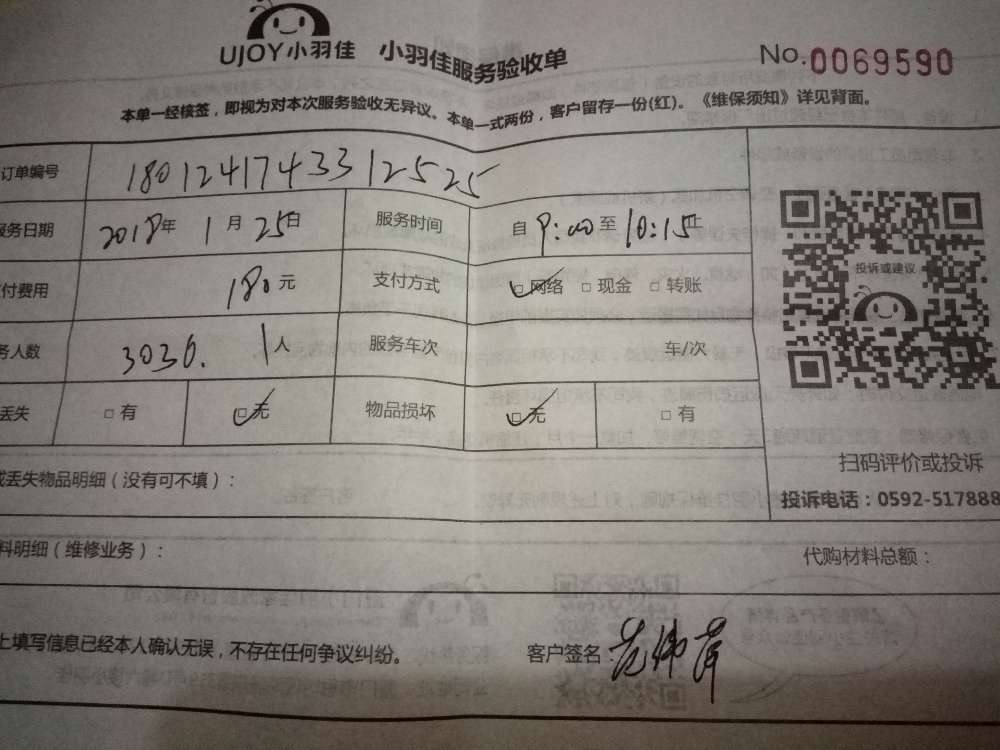 UJOY小羽佳 小羽佳服务验收单 No.0069590
本单一经核签，即视为对本次服务验收无异议。本单一式两份，客户留存一份(红)。《维保须知》详见背面。
订单编号 18012417433312525
服务日期 2018年 1月 25日 服务时间 自 9:00 至 10:15 止
付费用 180元 支付方式 网络 现金 转账
务人数 3036. 1人 服务车次 车/次
丢失 有 无 物品损坏 无 有
投诉或建议
扫码评价或投诉
丢失物品明细（没有可不填）：
投诉电话：0592-517888
料明细（维修业务）： 代购材料总额：
上填写信息已经本人确认无误，不存在任何争议纠纷。 客户签名：